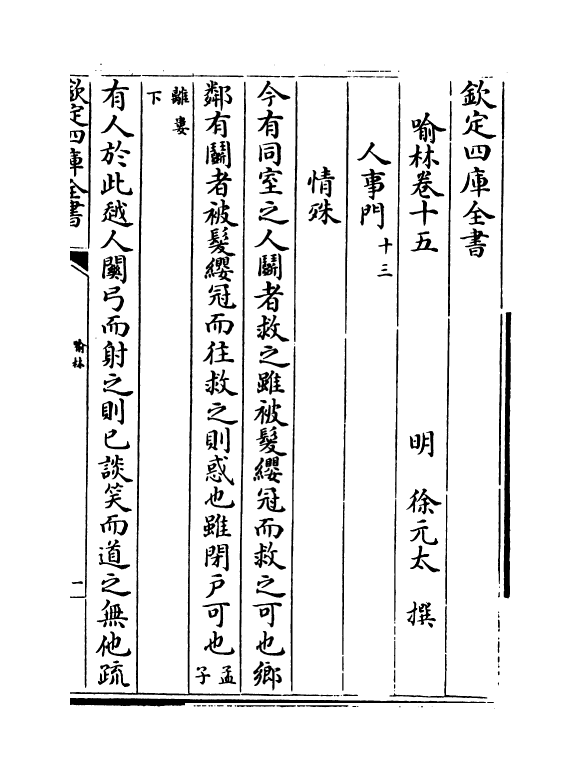 欽定四庫全書
喻林卷十五
明 徐元太 撰
人事門十三
情殊
今有同室之人鬭者救之雖被髮纓冠而救之可也鄉
鄰有鬭者被髮纓冠而往救之則惑也雖閉戶可也孟子
離婁下
有人於此越人關弓而射之則已談笑而道之無他疏
欽定四庫全書
喻林
一